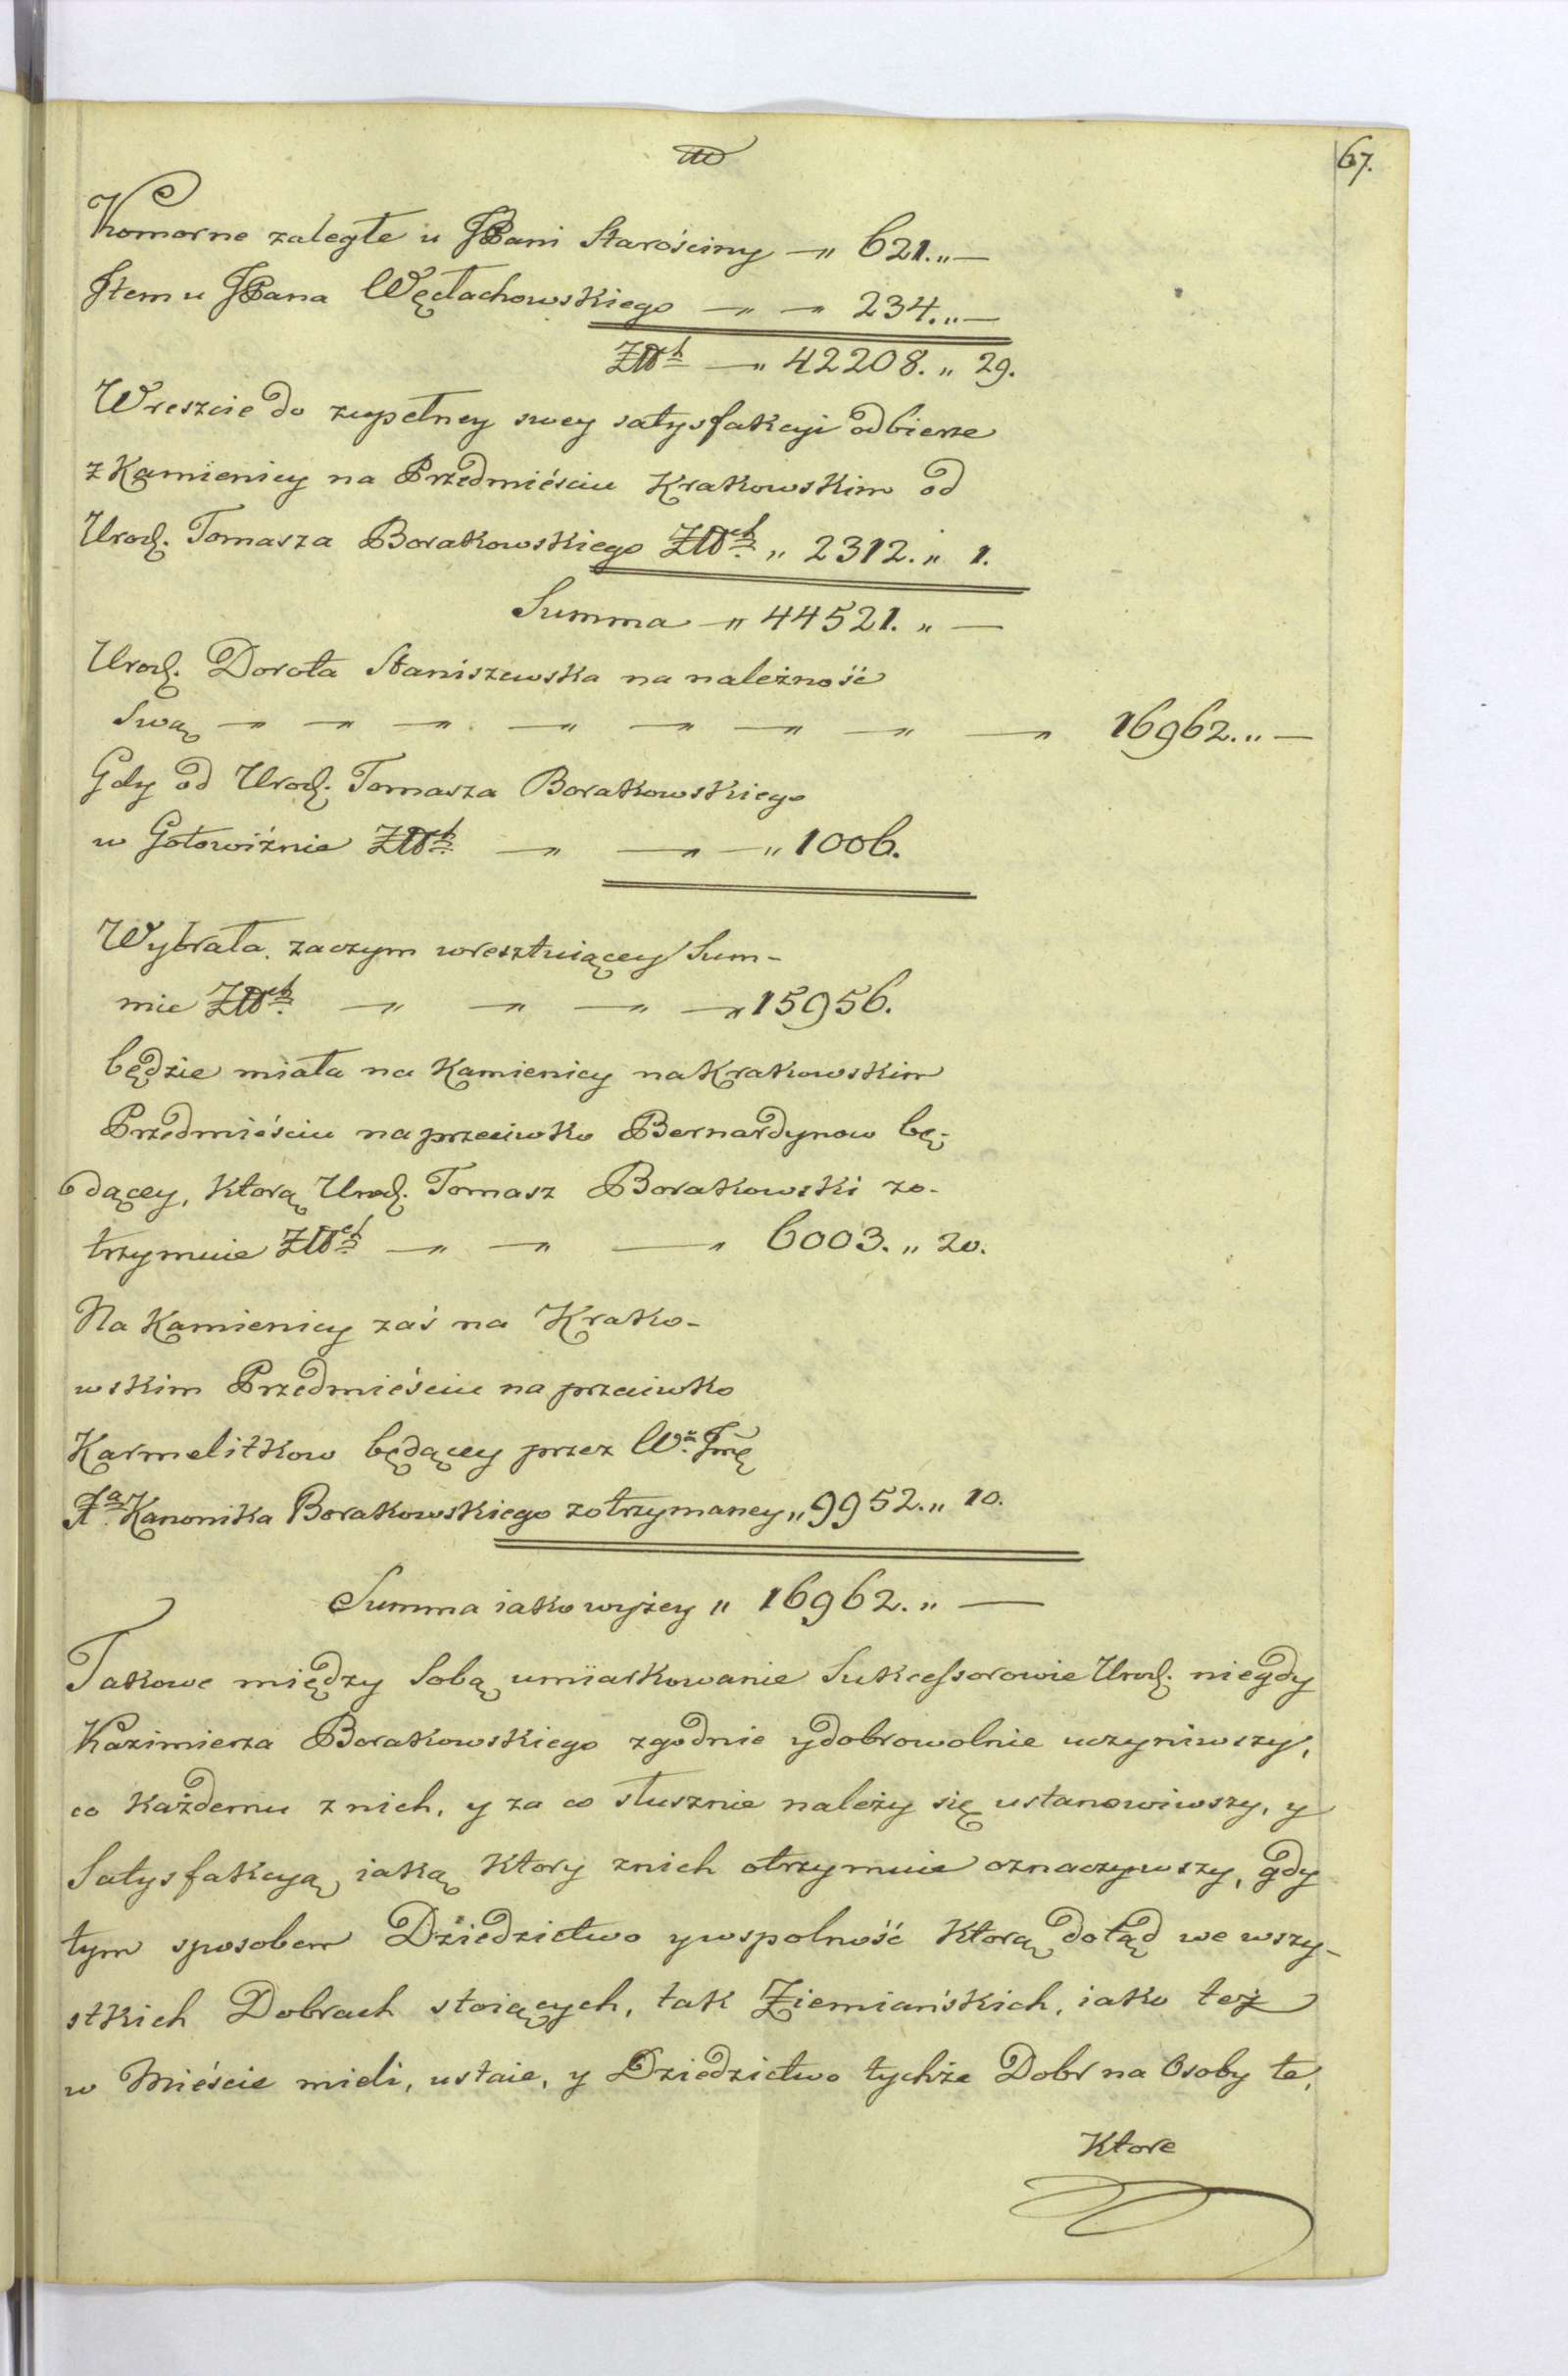 67.
Komorne zaległe u JPani Starościny —„ 621.„—
Item u JPana Węcłachowskiego —„ —„ 234.„—
Złłh —„ 42208.„ 29.
Wreszcie do zupełney swey satysfakcyi odbierze
z Kamienicy na Przedmieściu Krakowskim od
Urod. Tomasza Borakowskiego Złłch „ 2312.„ 1.
Summa —„ 44521.„ —
Urod. Dorota Staniszewska na należność
Swą —„ —„ —„ —„ —„ —„ —„ —„ 16962.„—
Gdy od Urod. Tomasza Borakowskiego
w Gotowiźnie Złłch —„ —„ —„ 1006.
Wybrała. zaczym w resztuiącey Sum-
mie Złłch —„ —„ —„ —„ 15956.
będzie miała na Kamienicy na Krakowskim
Przedmieściu naprzeciwko Bernardynow bę-
dącey, ktorą Urod. Tomasz Borakowski zo-
trzymuie Złłch —„ —„ —„ 6003.„ 20.
Na Kamienicy zaś na Krako-
wskim Przedmieściu na przeciwko
Karmelitkow będącey przez Wa. Jmę
Xa. Kanonika Borakowskiego zotrzymaney „ 9952.„ 10.
Summa iako wyżey „ 16962.„ —
Takowe między Sobą umiarkowanie Sukcessorowie Urod. niegdy
Kazimierza Borakowskiego zgodnie y dobrowolnie uczyniwszy,
co każdemu z nich, y za co słusznie należy się ustanowiwszy, y
Satysfakcyą iaką ktory z nich otrzymuie oznaczywszy, gdy
tym sposobem Dziedzictwo y wspolność ktorą dotąd we wszy-
stkich Dobrach stoiących, tak Ziemiańskich, iako też
w Mieście mieli, ustaie, y Dziedzictwo tychże Dobr na Osoby te,
Ktore